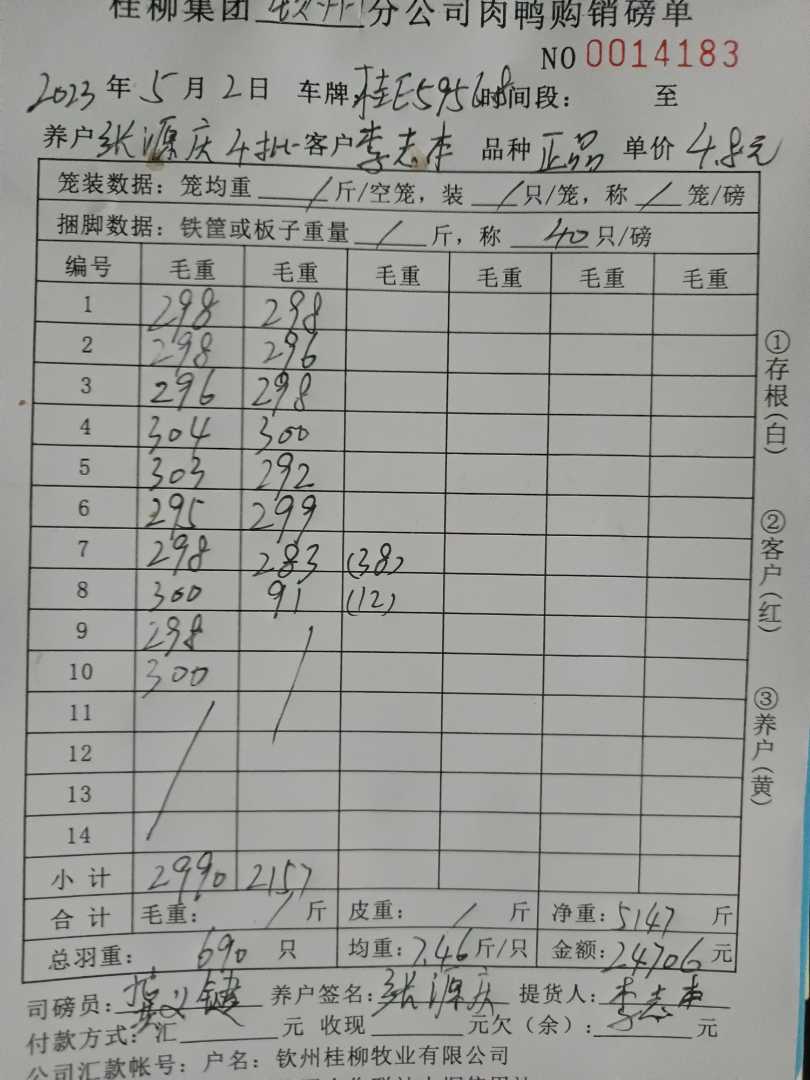 桂柳集团 钦州 分公司肉鸭购销磅单
NO 0014183
2023 年 5 月 2 日 车牌 桂E59568 时间段： 至
养户 张源庆 4批 客户 李志本 品种 正品 单价 4.8元
笼装数据：笼均重 / 斤/空笼，装 / 只/笼，称 / 笼/磅
捆脚数据：铁筐或板子重量 / 斤，称 40 只/磅
编号 毛重 毛重 毛重 毛重 毛重 毛重
1 298 298
2 298 296
3 296 298
4 304 300
5 303 292
6 295 299
7 298 283 (38)
8 300 91 (12)
9 298 /
10 300
11 /
12
13
14
小计 2990 2157
合计 毛重： / 斤 皮重： / 斤 净重：5147 斤
总羽重： 690 只 均重：7.46 斤/只 金额：24706 元
司磅员： 养户签名：张源庆 提货人：李志本
付款方式：汇 元 收现 元欠（余）： 元
公司汇款帐号：户名：钦州桂柳牧业有限公司
①存根（白）
②客户（红）
③养户（黄）